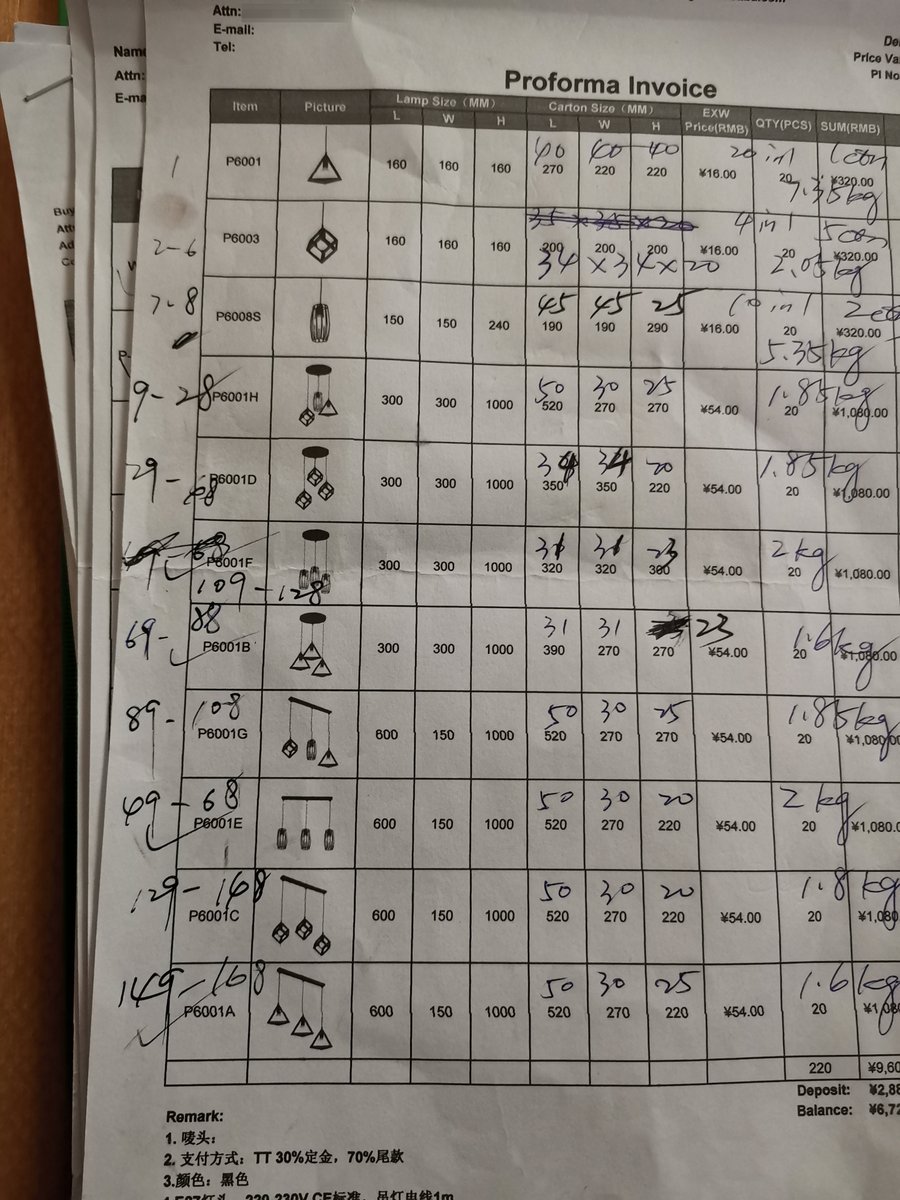 Attn:
E-mail:
Tel:
Name
Attn:
E-ma
Price Va
PI No
Proforma Invoice
Item Picture Lamp Size (MM) Carton Size (MM) EXW Price(RMB) QTY(PCS) SUM(RMB)
L W H L W H
40 40 40 20 in 1
1 P6001 160 160 160 270 220 220 ¥16.00 20 ¥320.00
7.35kg
35 x 35 x 20 4 in 1
2-6 P6003 160 160 160 200 200 200 ¥16.00 20 ¥320.00
34 x 34 x 20 2.05kg
7-8 45 45 25 10 in 1
P6008S 150 150 240 190 190 290 ¥16.00 20 ¥320.00
5.35kg
9-28 50 30 25 1.85kg
P6001H 300 300 1000 520 270 270 ¥54.00 20 ¥1,080.00
29- 34 34 20 1.85kg
P6001D 300 300 1000 350 350 220 ¥54.00 20 ¥1,080.00
31 31 23 2kg
P6001F 300 300 1000 320 320 300 ¥54.00 20 ¥1,080.00
109-128
69-88 31 31 23 1.6kg
P6001B 300 300 1000 390 270 270 ¥54.00 20 ¥1,080.00
89-108 50 30 25 1.85kg
P6001G 600 150 1000 520 270 270 ¥54.00 20 ¥1,080.00
49-68 50 30 20 2kg
P6001E 600 150 1000 520 270 220 ¥54.00 20 ¥1,080.0
129-148 50 30 20 1.8kg
P6001C 600 150 1000 520 270 220 ¥54.00 20 ¥1,080
149-168 50 30 25 1.6kg
P6001A 600 150 1000 520 270 220 ¥54.00 20 ¥1,080
220 ¥9,60
Deposit: ¥2,88
Balance: ¥6,72
Remark:
1. 唛头：
2. 支付方式：TT 30%定金，70%尾款
3.颜色：黑色
4.E27灯头，220-230V CE标准，吊灯电线1m